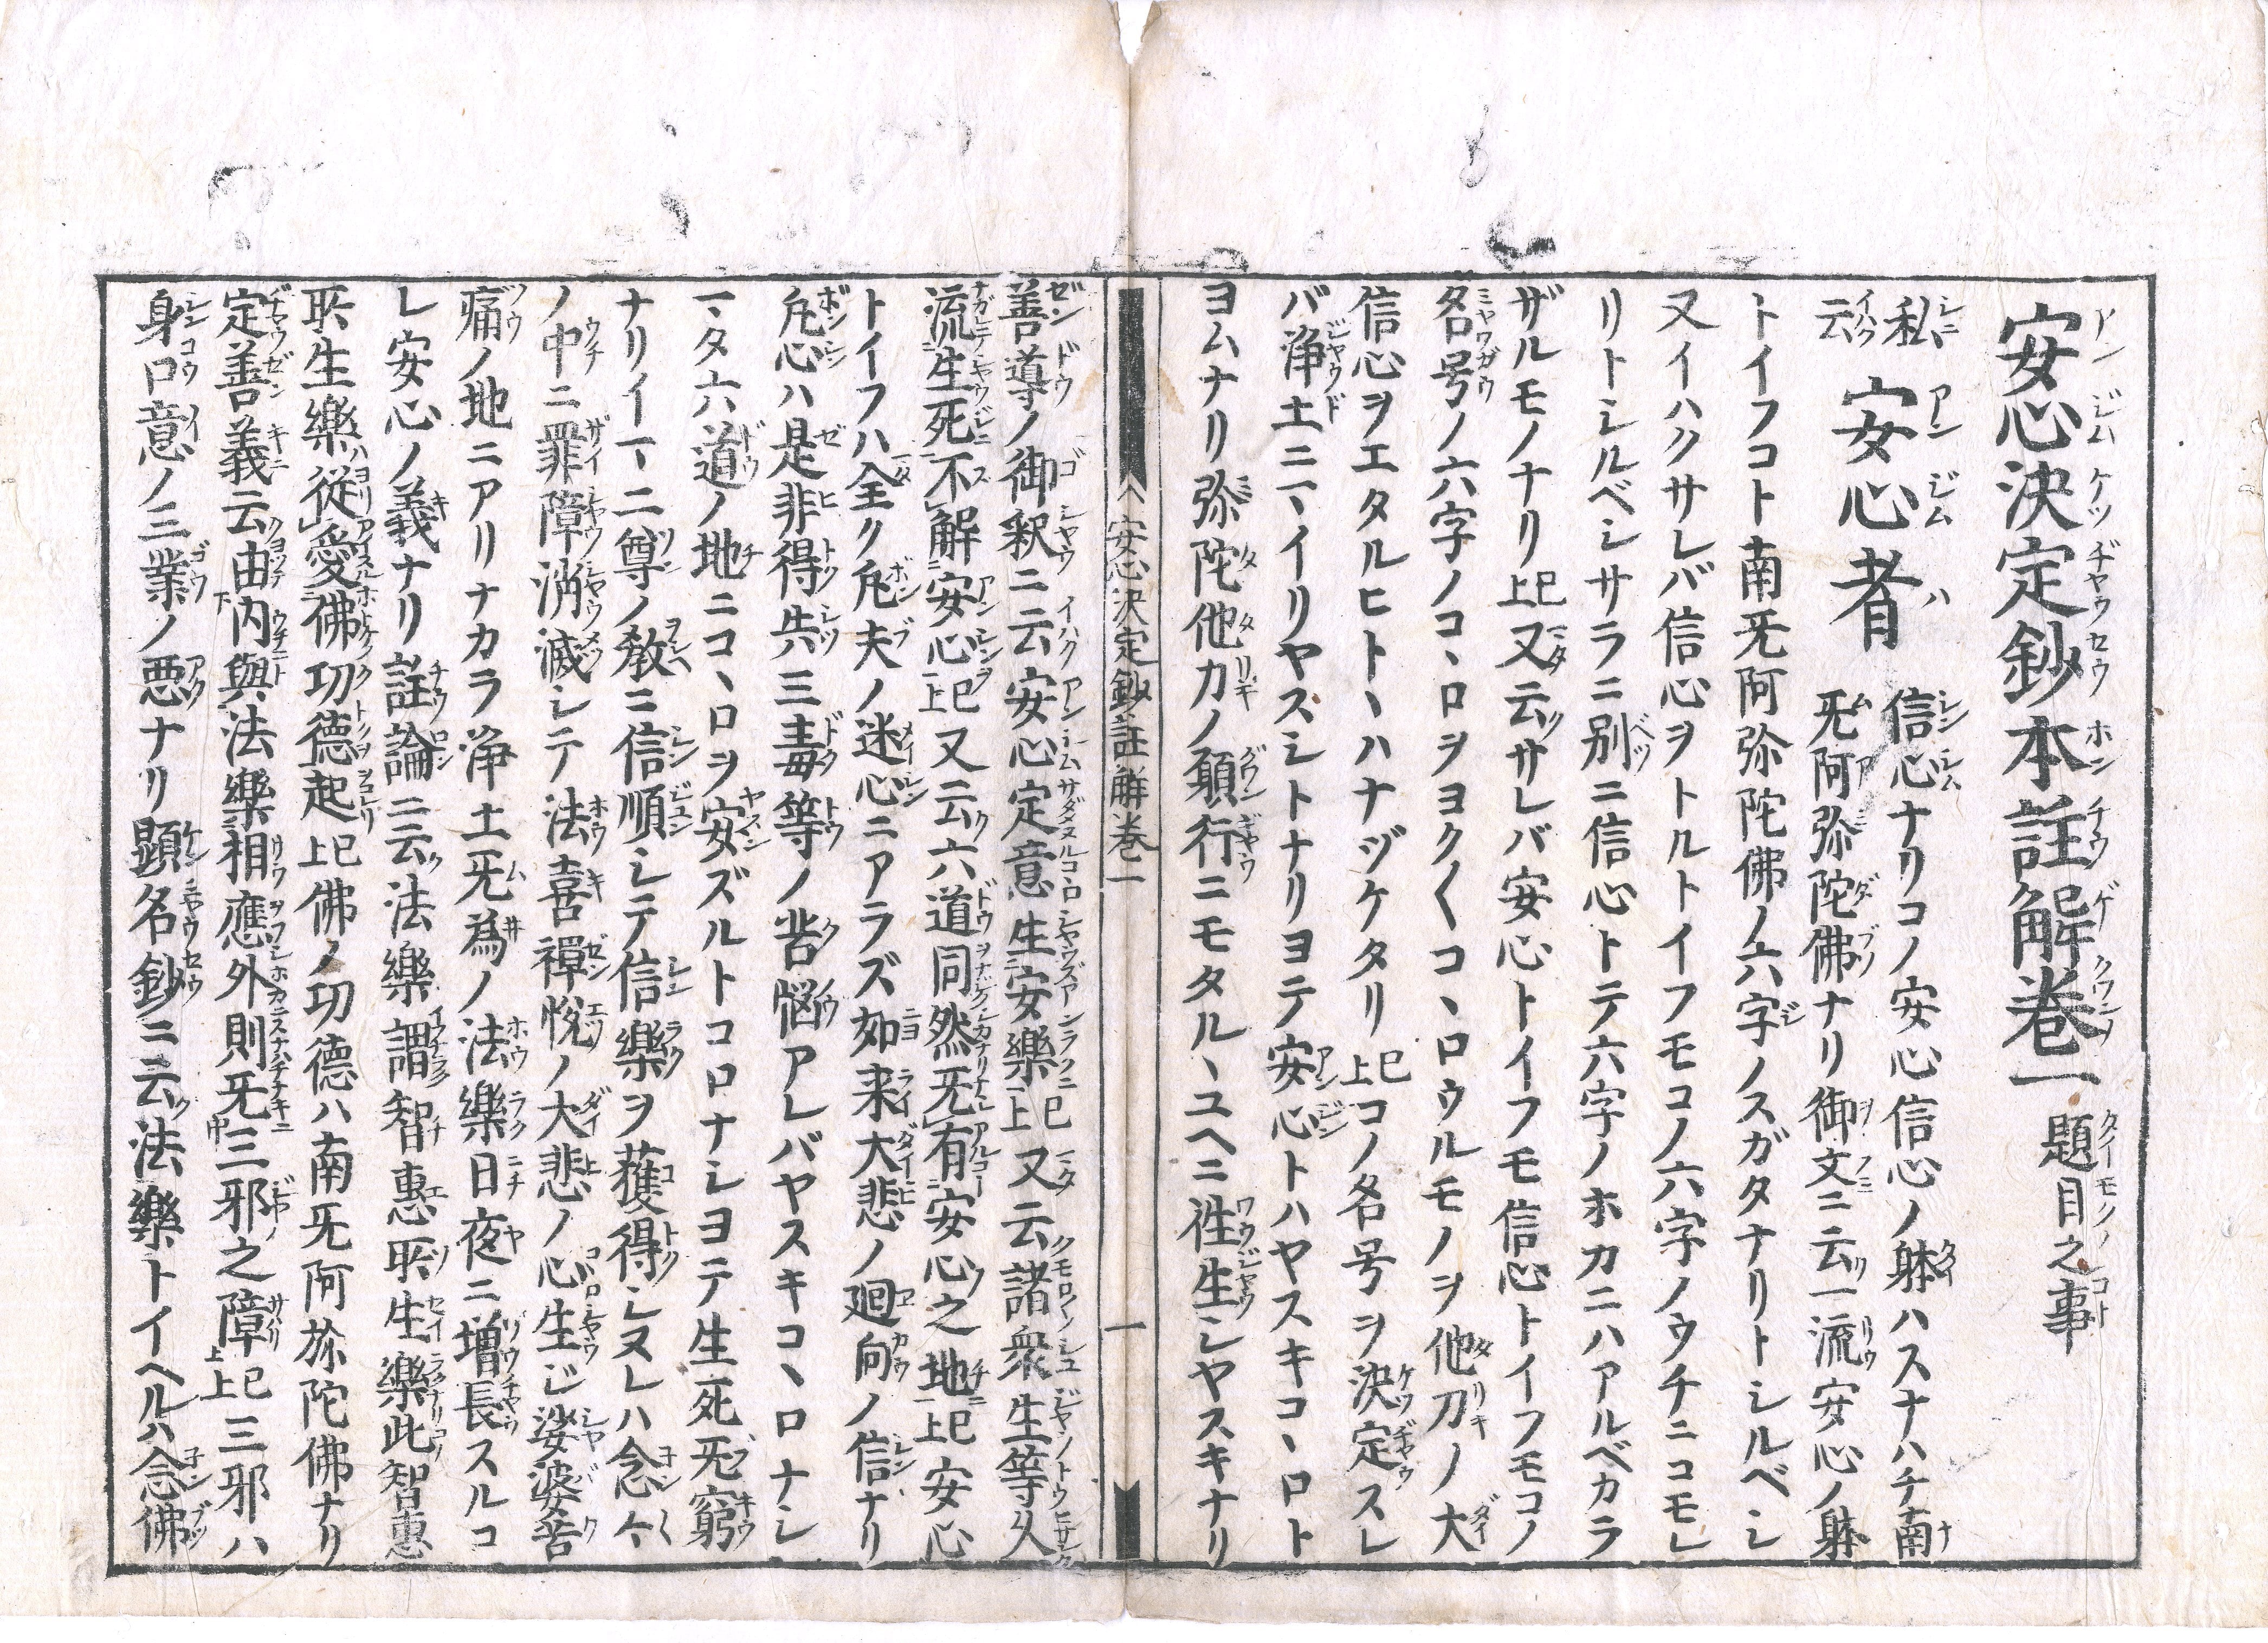 安心決定鈔本註解卷一 題目之事
私云 安心者 信心ナリコノ安心信心ノ躰ハスナハチ南
无阿弥陀佛ナリ御文ニ云一流安心ノ躰
トイフコト南无阿弥陀佛ノ六字ノスガタナリトシルベシ
又イハクサレバ信心ヲトルトイフモコノ六字ノウチニコモレ
リトシルベシサラニ別ニ信心トテ六字ノホカニハアルベカラ
ザルモノナリ已上又云サレバ安心トイフモ信心トイフモコノ
名号ノ六字ノコヽロヲヨク〱コヽロウルモノヲ他力ノ大
信心ヲエタルヒトヽハナヅケタリ已上コノ名号ヲ決定スレ
バ淨土ニマイリヤスシトナリヨテ安心トハヤスキコヽロト
ヨムナリ弥陀他力ノ願行ニモタルヽユヘニ徃生シヤスキナリ
安心決定鈔註解卷一 一
善導ノ御釈ニ云安心定意生安樂已上又云諸衆生等久
流生死不解安心已上又云六道同然无有安心之地已上安心
トイフハ全ク凡夫ノ迷心ニアラズ如来大悲ノ廻向ノ信ナリ
凡心ハ是非得失三毒等ノ苦悩アレバヤスキコヽロナシ
マタ六道ノ地ニコヽロヲ安ズルトコロナシヨテ生死无窮
ナリイマ二尊ノ教ニ信順シテ信樂ヲ獲得シヌレハ念々
ノ中ニ罪障消滅シテ法喜禪悦ノ大悲ノ心生ジ娑婆苦
痛ノ地ニアリナカラ淨土无為ノ法樂日夜ニ増長スルコ
レ安心ノ義ナリ註論ニ云法樂謂智惠所生樂此智惠
所生樂從愛佛功德起已上佛ノ功德ハ南无阿弥陀佛ナリ
定善義云由内與法樂相應外則无三邪之障已上三邪ハ
身口意ノ三業ノ悪ナリ顕名鈔ニ云法樂トイヘルハ念佛